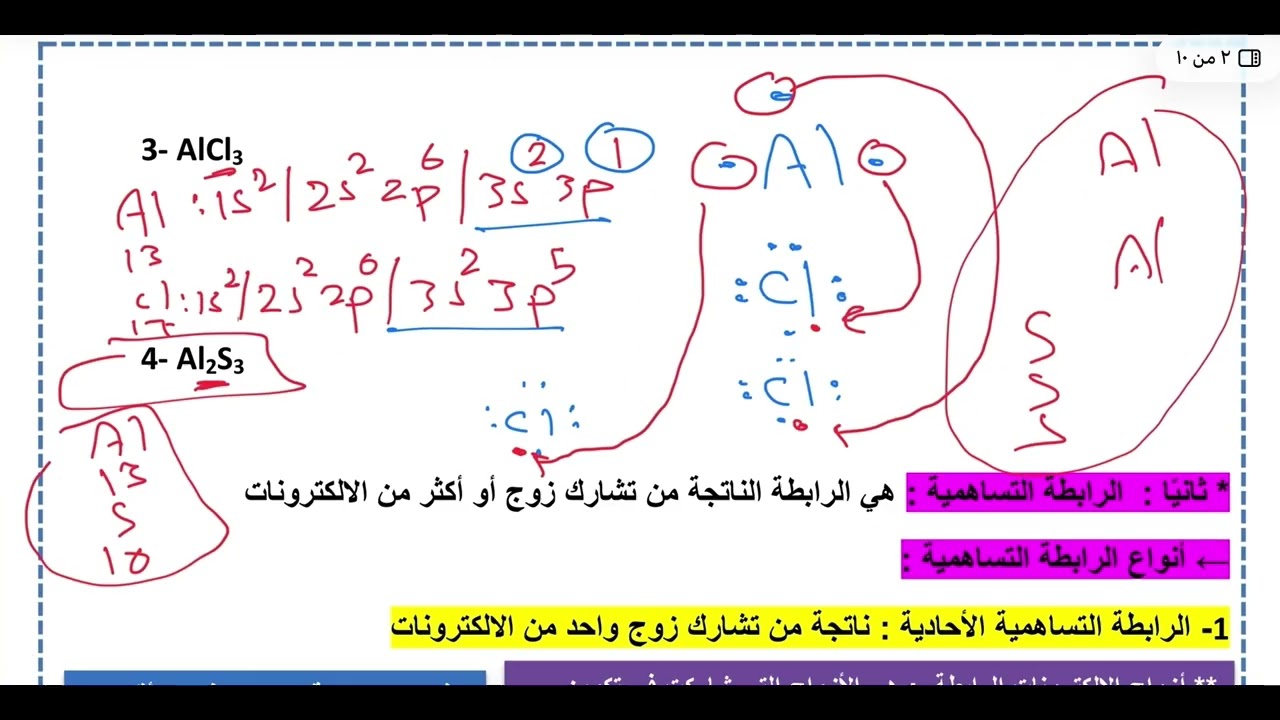 ٢ من ١٠
3- AlCl₃
Al : 1s² / 2s² 2p⁶ | 3s² 3p¹
13
Cl : 1s² / 2s² 2p⁶ | 3s² 3p⁵
17
Al
Cl
Cl
Cl
Al
Al
S
S
S
4- Al₂S₃
Al
13
S
* ثانيًا : الرابطة التساهمية : هي الرابطة الناتجة من تشارك زوج أو أكثر من الالكترونات
← أنواع الرابطة التساهمية :
1- الرابطة التساهمية الأحادية : ناتجة من تشارك زوج واحد من الالكترونات